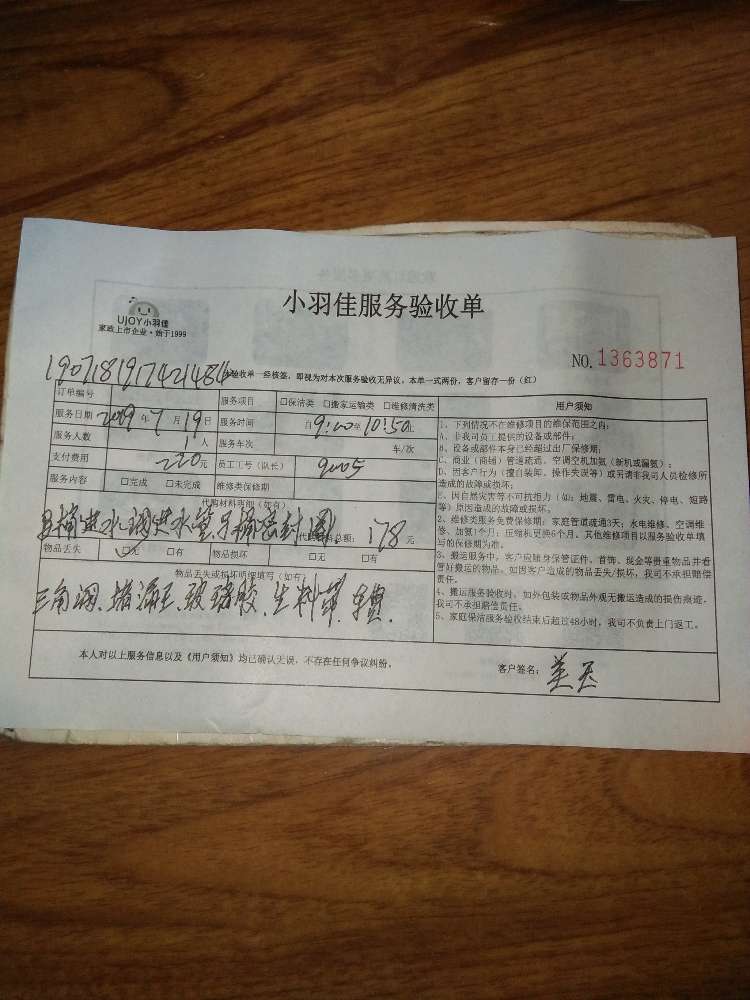 小羽佳服务验收单
UJOY小羽佳
家政上市企业·始于1999
NO. 1363871
验收单一经核签，即视为对本次服务验收无异议。本单一式两份，客户留存一份（红）
订单编号
服务项目 □保洁类 □搬家运输类 □维修清洗类
服务日期 2019年7月19日 服务时间 自9:00至10:50
服务人数 1人 服务车次 车/次
支付费用 220元 员工工号（队长） 9005
服务内容 □完成 □未完成 维修类保修期
代购材料明细（如有）
马桶进水阀进水管马桶密封圈 代购材料总额：178元
物品丢失 □无 □有 物品损坏 □无 □有
物品丢失或损坏明细填写（如有）
三角阀、堵漏王、玻璃胶、生料带
用户须知
1、下列情况不在维修项目的维保范围之内：
A、非我司员工提供的设备或部件；
B、设备或部件本身已经超过出厂保修期；
C、商业（商铺）管道疏通，空调空机加氨（新机或漏氨）；
D、因客户行为（擅自装卸、操作失误等）或另请非我司人员检修所
造成的故障或损坏；
E、因自然灾害等不可抗拒力（如：地震、雷电、火灾、停电、短路
等）原因造成的故障或损坏。
2、维修类服务免费保修期：家庭管道疏通3天；水电维修、空调维
修、加氨1个月；压缩机更换6个月。其他维修项目以服务验收单填
写的保修期为准。
3、搬运服务中，客户应随身保管证件、首饰、现金等贵重物品并看
管好搬运的物品。如因客户造成的物品丢失/损坏，我司不承担赔偿
责任。
4、搬运服务验收时，如外包装或物品外观无搬运造成的损伤痕迹，
我司不承担赔偿责任。
5、家庭保洁服务验收结束后超过48小时，我司不负责上门返工。
本人对以上服务信息以及《用户须知》均已确认无误，不存在任何争议纠纷。
客户签名：